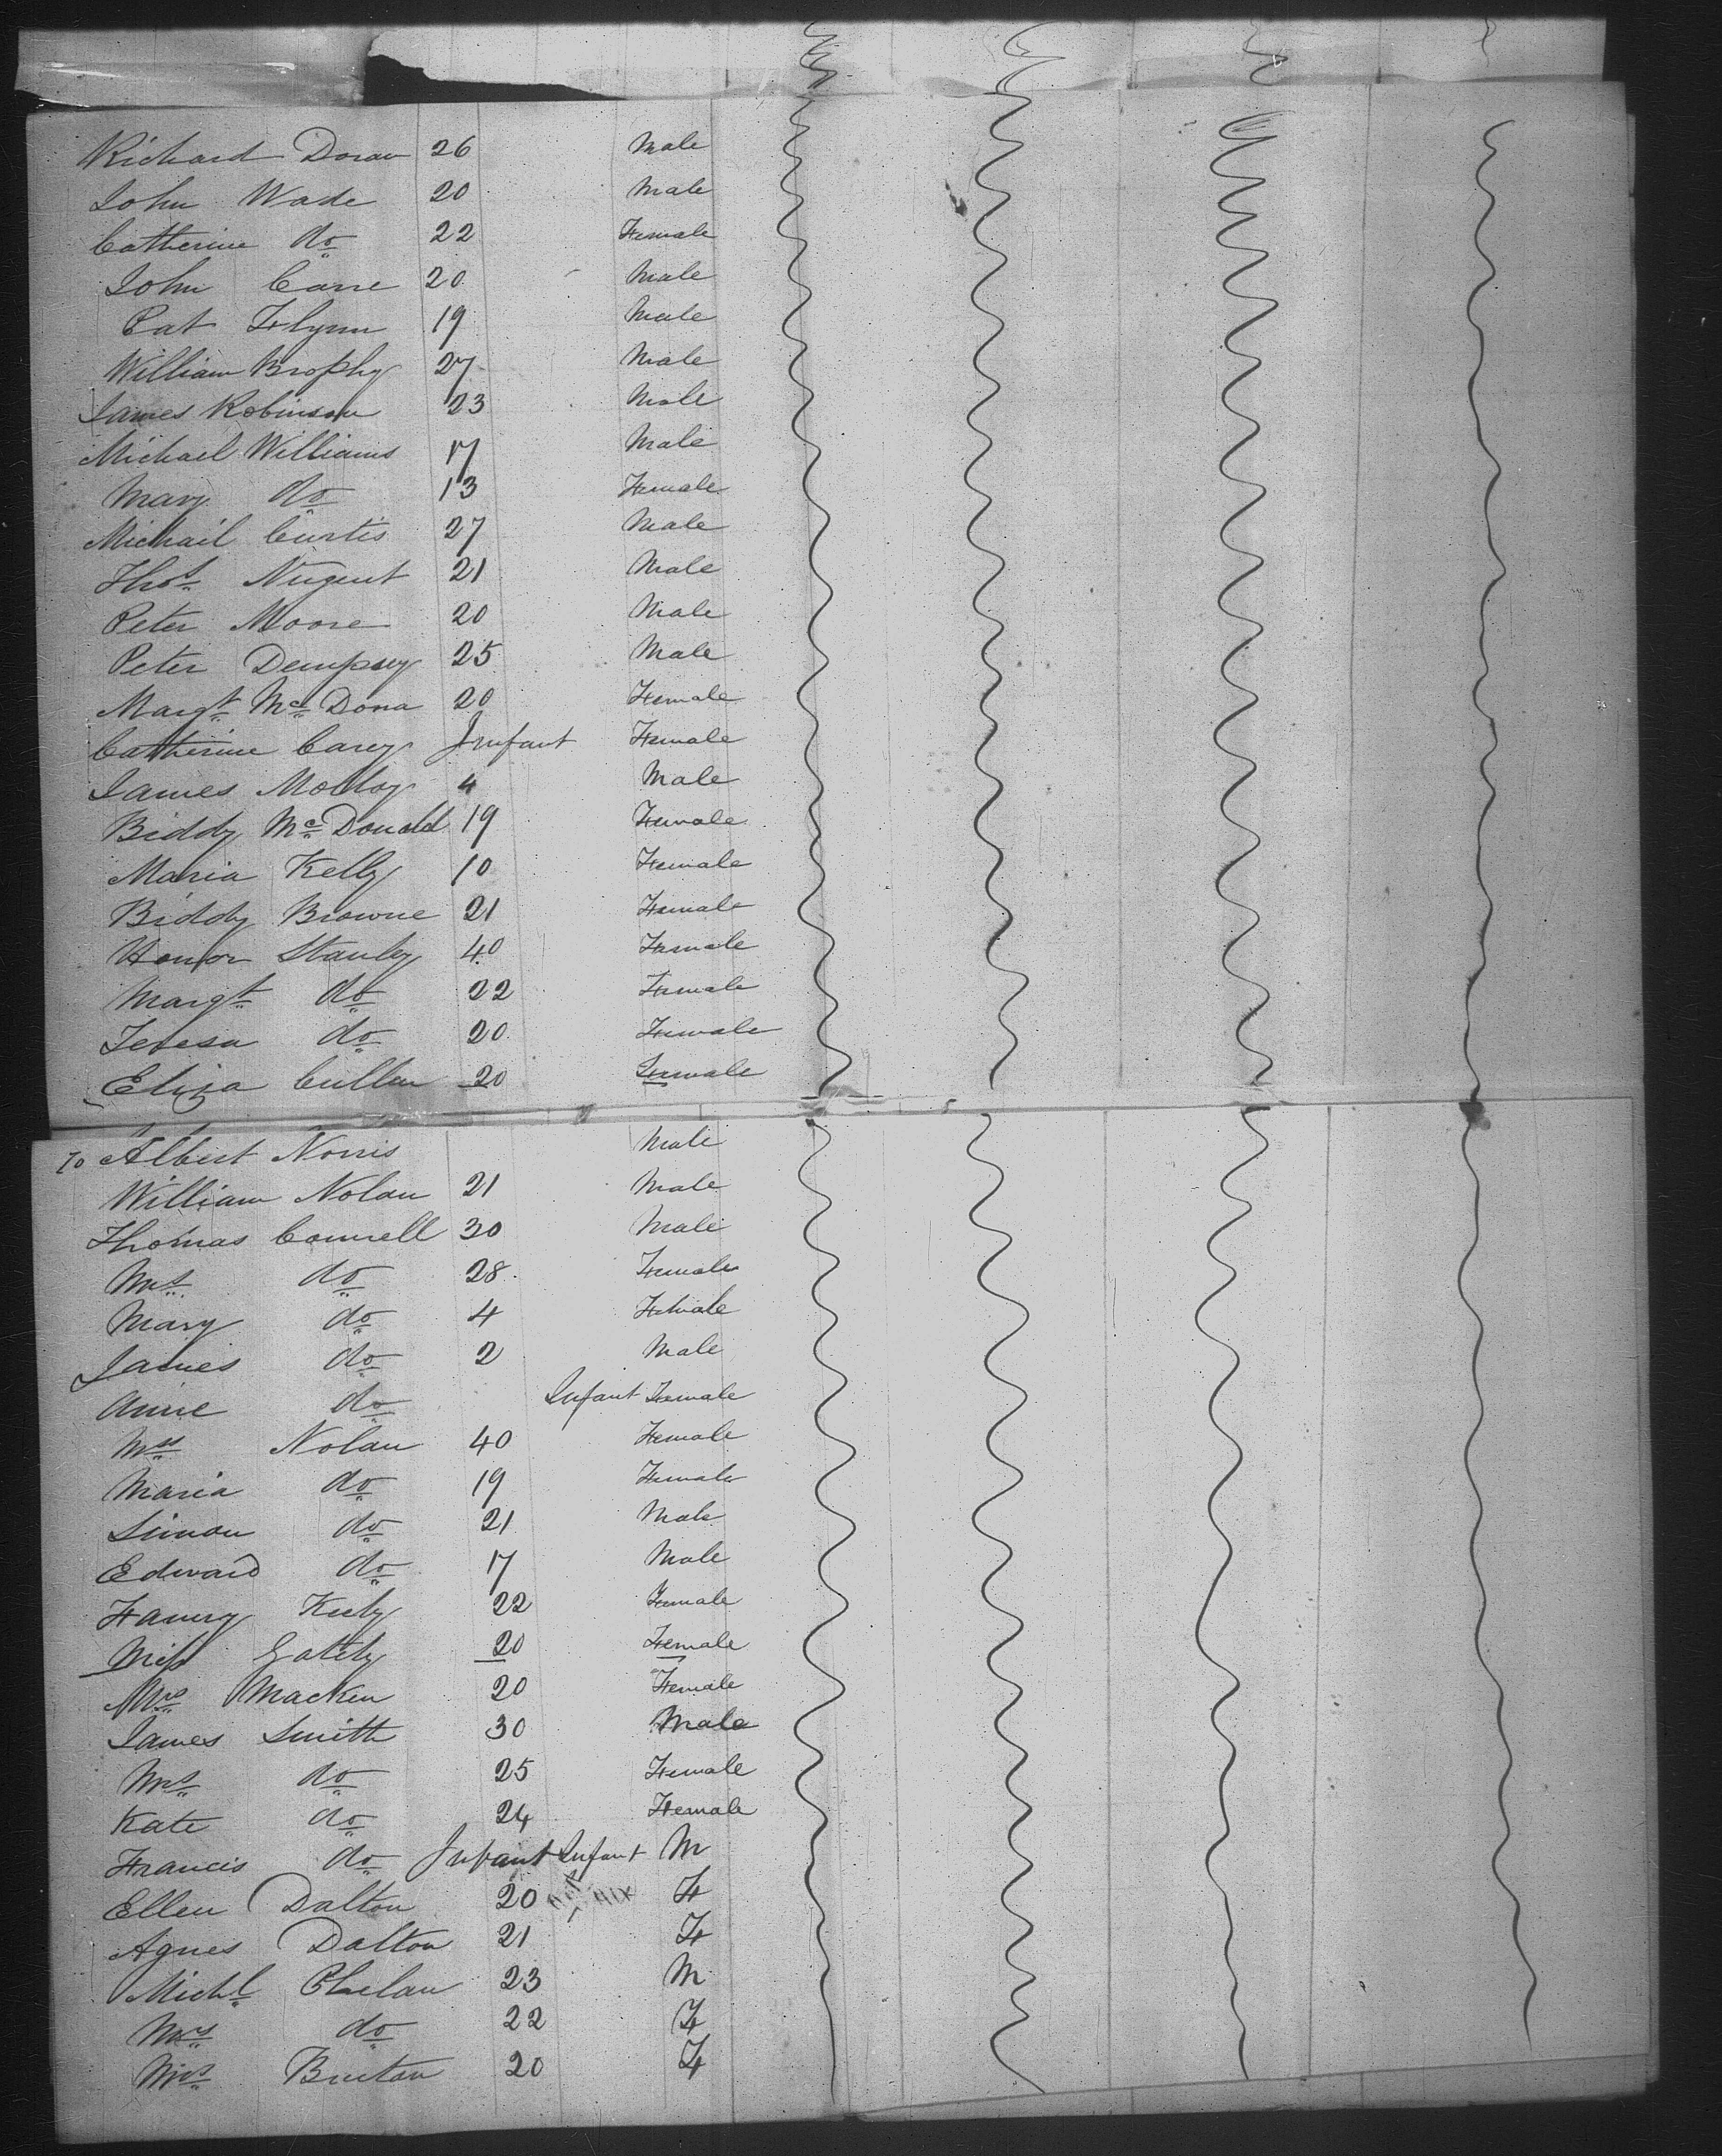 Richard Doran 26 Male
John Wade 20 Male
Catherine do 22 Female
John Carre 20 Male
Pat Flynn 19 Male
William Brophy 27 Male
James Robinson 23 Male
Michael Williams 17 Male
Mary do 13 Female
Michail Curtis 27 Male
Thos Nugent 21 Male
Peter Moore 20 Male
Peter Dempsey 25 Male
Margt Mc Dona 20 Female
Catherine Carey Infant Female
James Molloy 4 Male
Biddy Mc Donald 19 Female
Maria Kelly 10 Female
Biddy Browne 21 Female
Honor Stanley 40 Female
Margt do 22 Female
Teresa do 20 Female
Eliza Cullen 20 Female
70 Albert Norris Male
William Nolan 21 Male
Thomas Connell 30 Male
Mrs do 28 Female
Mary do 4 Female
James do 2 Male
Anne do Infant Female
Mrs Nolan 40 Female
Maria do 19 Female
Simon do 21 Male
Edward do 17 Male
Fanny Kiely 22 Female
Miss Gately 20 Female
Mrs Macken 20 Female
James Smith 30 Male
Mrs do 25 Female
Kate do 24 Female
Francis do Infant Infant M
Ellen Dalton 20 F
Agnes Dalton 21 F
Michl Phelan 23 M
Mrs do 22 F
Mrs Bruton 20 F